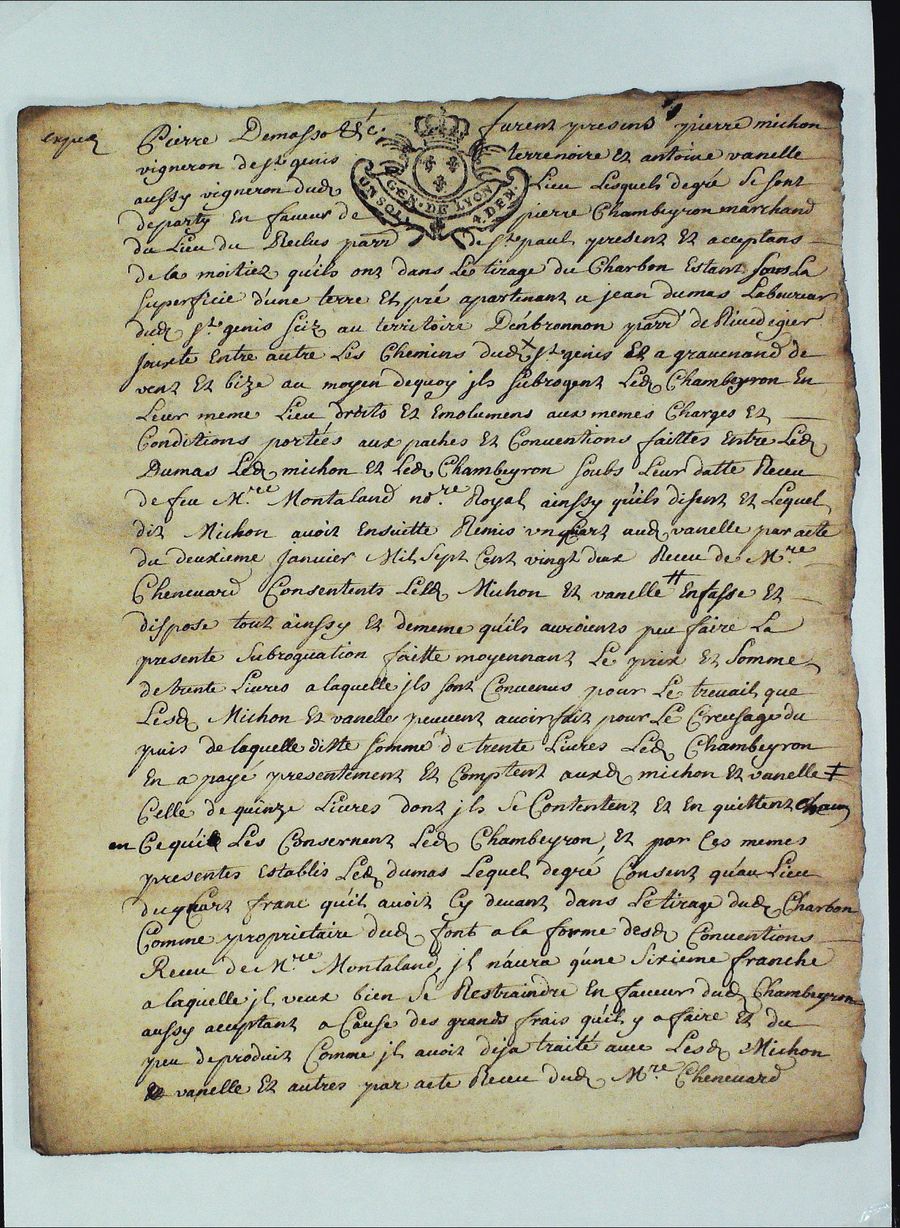 exped
Pierre Demasso &c. furent presents pierre michon
vigneron de st genis terrenoire Et antoine vanelle
aussy vigneron dud Lieu Lesquels degré Se sont
departy En faveur de pierre Chambeyron marchand
GEN. DE LYON
UN SOL 4. DEN.
du Lieu du Reclus parr de st paul present Et aceptans
de la moitiez qu'ils ont dans Le tirage du Charbon Estant sous La
superficie d'une terre Et pré apartenant a jean dumas Laboureur
dud st genis sciz au territoire D'enbronnon parr de Rivedegier
jouxte Entre autre Les Chemins dud st genis Et a gravenand de
vent Et bize au moyen dequoy jls subrogent Led Chambeyron En
Leur meme Lieu droits Et Emolumens aux memes Charges Et
Conditions portées aux paches Et Conventions faittes Entre Led
Dumas Led michon Et Led Chambeyron soubs Leur datte Receu
de feu Mre Montaland nore Royal ainssy qu'ils disent Et Lequel
dit Michon avoit Ensuitte Remis un quart aud vanelle par acte
du deuxieme Janvier Mil Sept Cent vingt deux Receu de Mre
Chenevard Consentents Lesd Michon Et vanelle # Enfasse Et
dispose tout ainssy Et dememe qu'ils auroients peu faire La
presente Subroguation faitte moyennant Le prix Et Somme
de trente Livres a laquelle jls sont Convenus pour Le travail que
Lesd Michon Et vanelle peuvent avoir fait pour Le Creusage du
puis de laquelle ditte somme de trente Livres Led Chambeyron
En a payé presentement Et Comptent auxd michon Et vanelle ‡
Celle de quinze Livres dont jls Se Contentent Et En quittent chacun
en Ce qui Les Consernent Led Chambeyron, Et par Ces memes
presentes Establis Led dumas Lequel degré Consent qu'au Lieu
du quart franc qu'il avoit Cy devant dans Le tirage dud Charbon
Comme proprietaire dud font a la forme desd Conventions
Receu de Mre Montaland, jl n'aura q'une Sixieme franche
a laquelle jl veux bien Se Restraindre En faveur dud Chambeyron
aussy aceptant a Cause des grands frais qu'il y a faire Et du
peu de produit Comme jl avoit deja traité avec Lesd Michon
Et vanelle Et autres par acte Receu dud Mre Chenevard